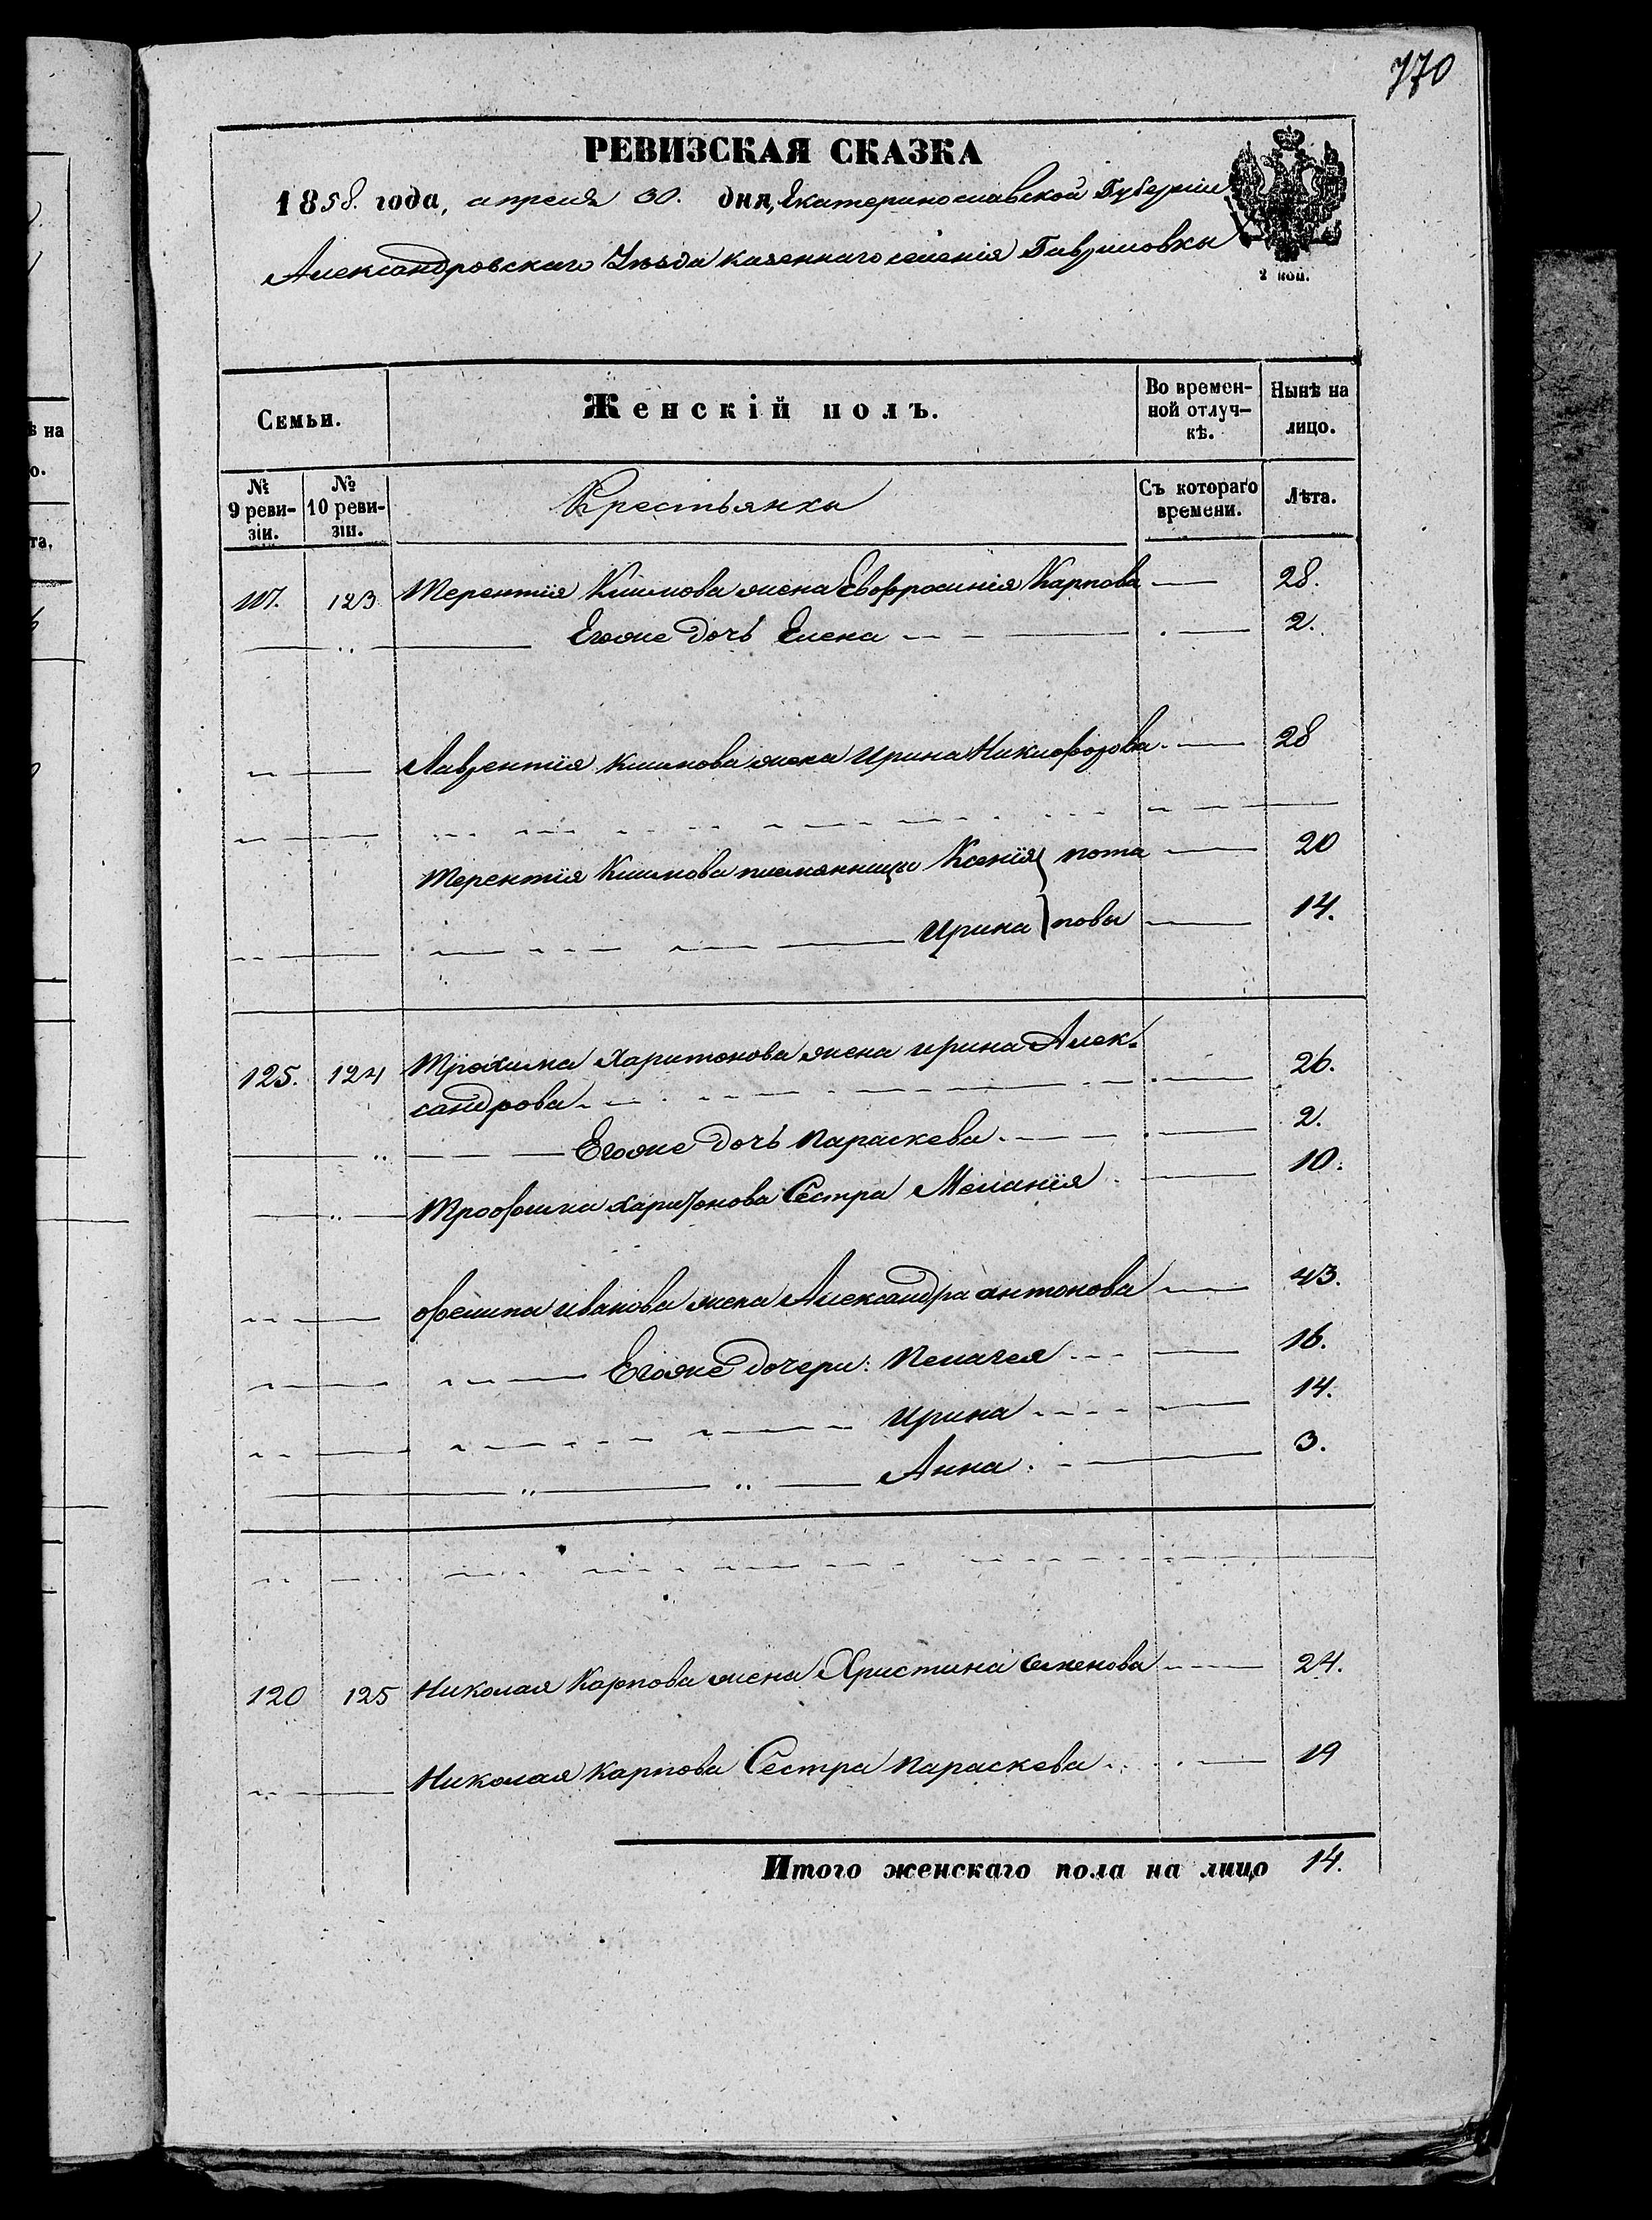 770
РЕВИЗСКАЯ СКАЗКА
1858. года, апреля 30. дня, Екатеринославской Губернии
Александровскаго Уезда казеннаго селения Гавриловки
2 коп.
Семьи. Женскій полъ. Во времен-ной отлуч-кѣ. Нынѣ на лицо.
№ 9 реви-зіи. № 10 реви-зіи. Крестьянки Съ котораго времени. Лѣта.
117. 123 Терентія Климова жена Евофросинія Карпова 28.
Егоже дочь Елена 2.
Лаврентія климова жена Ирина Никифорова 28
Терентія Климова племянницы Ксенія } пота 20
Ирина } повы 14.
125. 124 Трохима Харитонова жена ирина Алек-
сандрова 26.
Егоже дочь Параскева 2.
Трофима харитонова Сестра Меланія 10.
филипа иванова жена Александра антонова 43.
Егоже дочери: Пелагея 16.
Ирина 14.
Анна 3.
120 125 Николая Карпова жена Христина Семенова 24.
Николая Карпова Сестра Параскева 19
Итого женскаго пола на лицо 14.